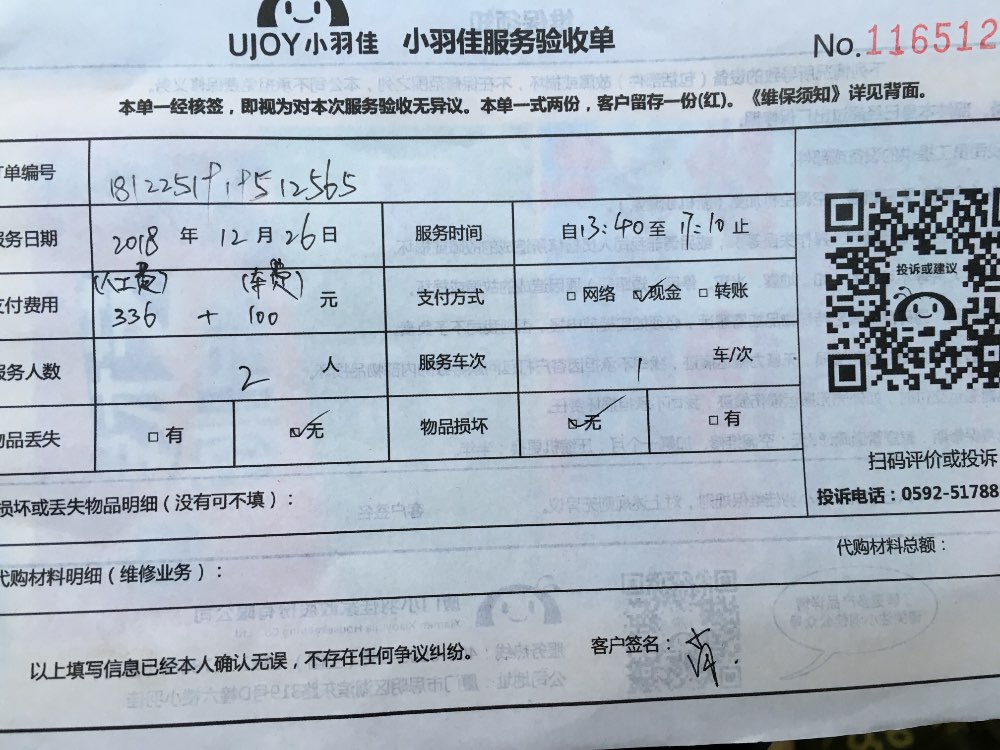 UJOY小羽佳 小羽佳服务验收单
No.116512
本单一经核签，即视为对本次服务验收无异议。本单一式两份，客户留存一份(红)。《维保须知》详见背面。
订单编号
服务日期 2018 年 12 月 26 日 服务时间 自13:40至17:10止
(人工费) (车费)
支付费用 336 + 100 元 支付方式 □ 网络 ☑现金 □ 转账
服务人数 2 人 服务车次 1 车/次
物品丢失 □ 有 ☑无 物品损坏 ☑无 □ 有
投诉或建议
扫码评价或投诉
投诉电话：0592-51788
损坏或丢失物品明细（没有可不填）：
代购材料明细（维修业务）： 代购材料总额：
以上填写信息已经本人确认无误，不存在任何争议纠纷。 客户签名：